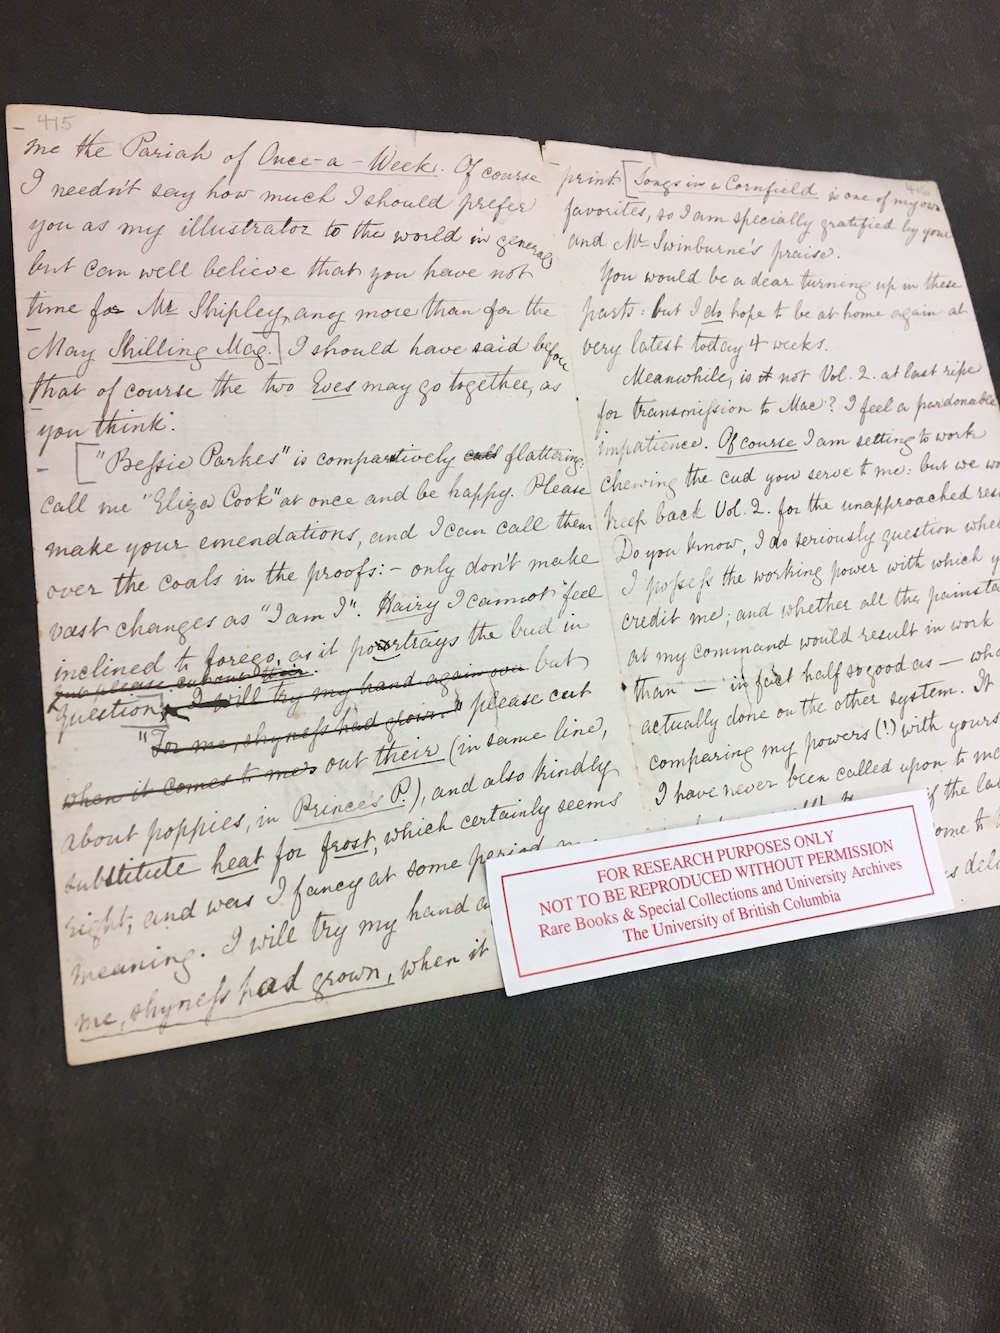 415
me the Pariah of Once-a-Week. Of course
I needn't say how much I should prefer
you as my illustrator to the world in general
but can well believe that you have not
time for Mr Shipley, any more than for the
May Shilling Mag.] I should have said before
that of course the two Eves may go together, as
you think.
["Bessie Parkes" is comparatively call flattering:
call me "Eliza Cook" at once and be happy. Please
make your emendations, and I can call them
over the coals in the proofs:- only don't make
vast changes as "I am I". Hairy I cannot feel
inclined to forego, as it portrays the bud in
please cut out their
question] I will try my hand again on but
"For me, shyness had grown." please cut
when it comes to me. out their (in same line,
about poppies, in Prince's P.), and also kindly
substitute heat for frost, which certainly seems
right; and was I fancy at some period my
meaning. I will try my hand a
me, shyness had grown, when it
416
print [Songs in a Cornfield is one of my own
favorites, so I am specially gratified by your
and Mr Swinburne's praise.
You would be a dear turning up in these
parts: but I do hope to be at home again at
very latest today 4 weeks.
Meanwhile, is it not Vol. 2. at last ripe
for transmission to Mac? I feel a pardonable
impatience. Of course I am setting to work
chewing the cud you serve to me: but we wo
keep back Vol. 2. for the unapproached res
Do you know, I do seriously question whe
I possess the working power with which y
credit me; and whether all the painsta
at my command would result in work
than — in fact half so good as — wha
actually done on the other system. It
comparing my powers (!) with yours
I have never been called upon to me
if the la
ome to
s deli
FOR RESEARCH PURPOSES ONLY
NOT TO BE REPRODUCED WITHOUT PERMISSION
Rare Books & Special Collections and University Archives
The University of British Columbia